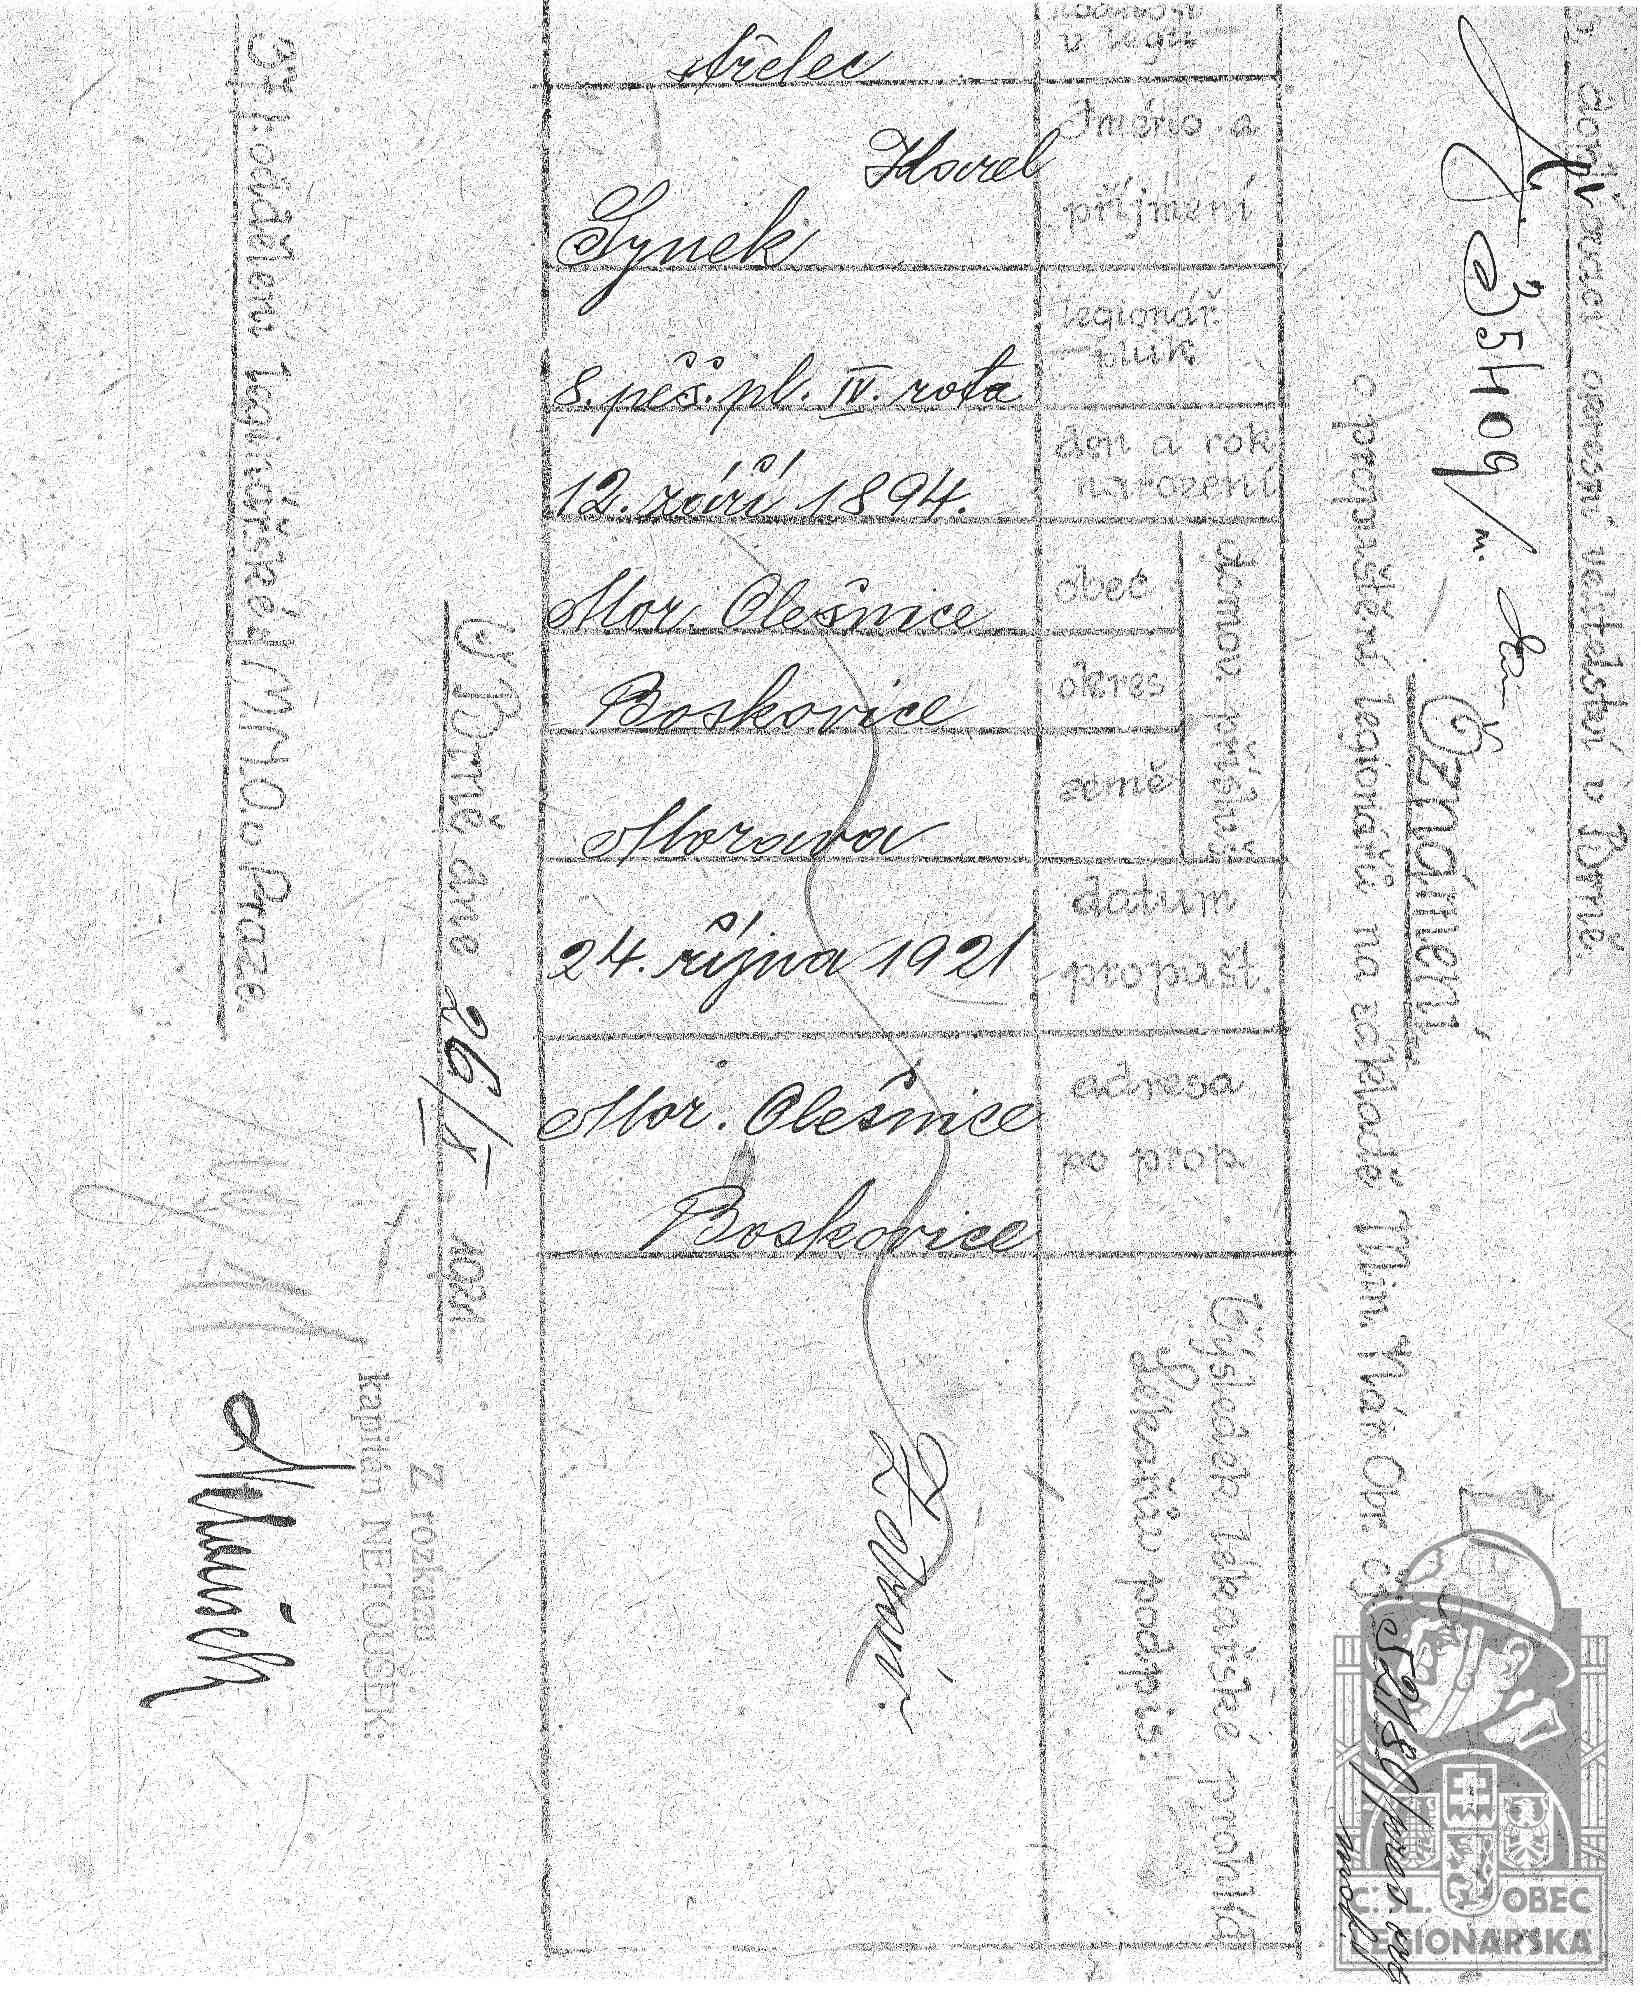 Dopl. okresní velitelství v Brně.
35409/
Oznámení
o propuštění legionářů na základě Min. Nár. Obr. čj. 52180/
hodnost v legii
střelec
Jméno a příjmení
Karel Synek
legionář. pluk
8. pěš. pl. IV. rota
den a rok narození
12. září 1894.
domov. přísluš.
obec
Mor. Olešnice
okres
Boskovice
země
Morava
datum propušt.
24. října 1921
adresa po prop.
Mor. Olešnice
Boskovice
Výsledek lékařské prohlídky
Lékařův podpis:
Zdráv.
V Brně dne 26/X 1921.
Z rozkazu
kapitán NETOUŠEK:
37. oddělení legionářské M.N.O. v Praze.
Č. SL. OBEC
LEGIONÁŘSKÁ